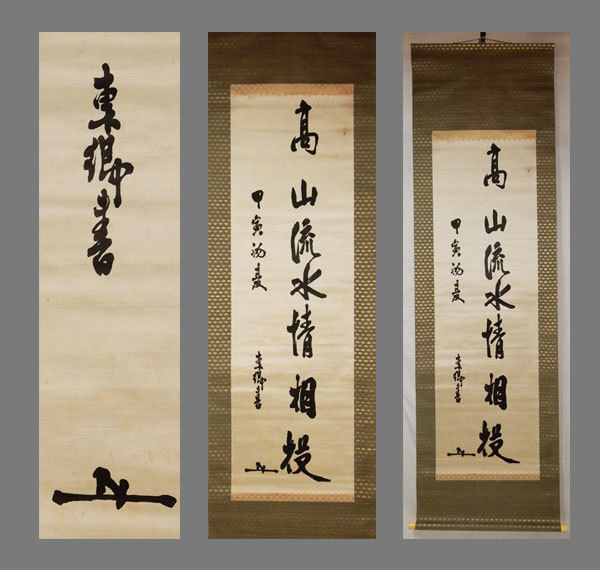 東郷書
高山流水情相投
甲寅初夏
東郷書
高山流水情相投
甲寅初夏
東郷書